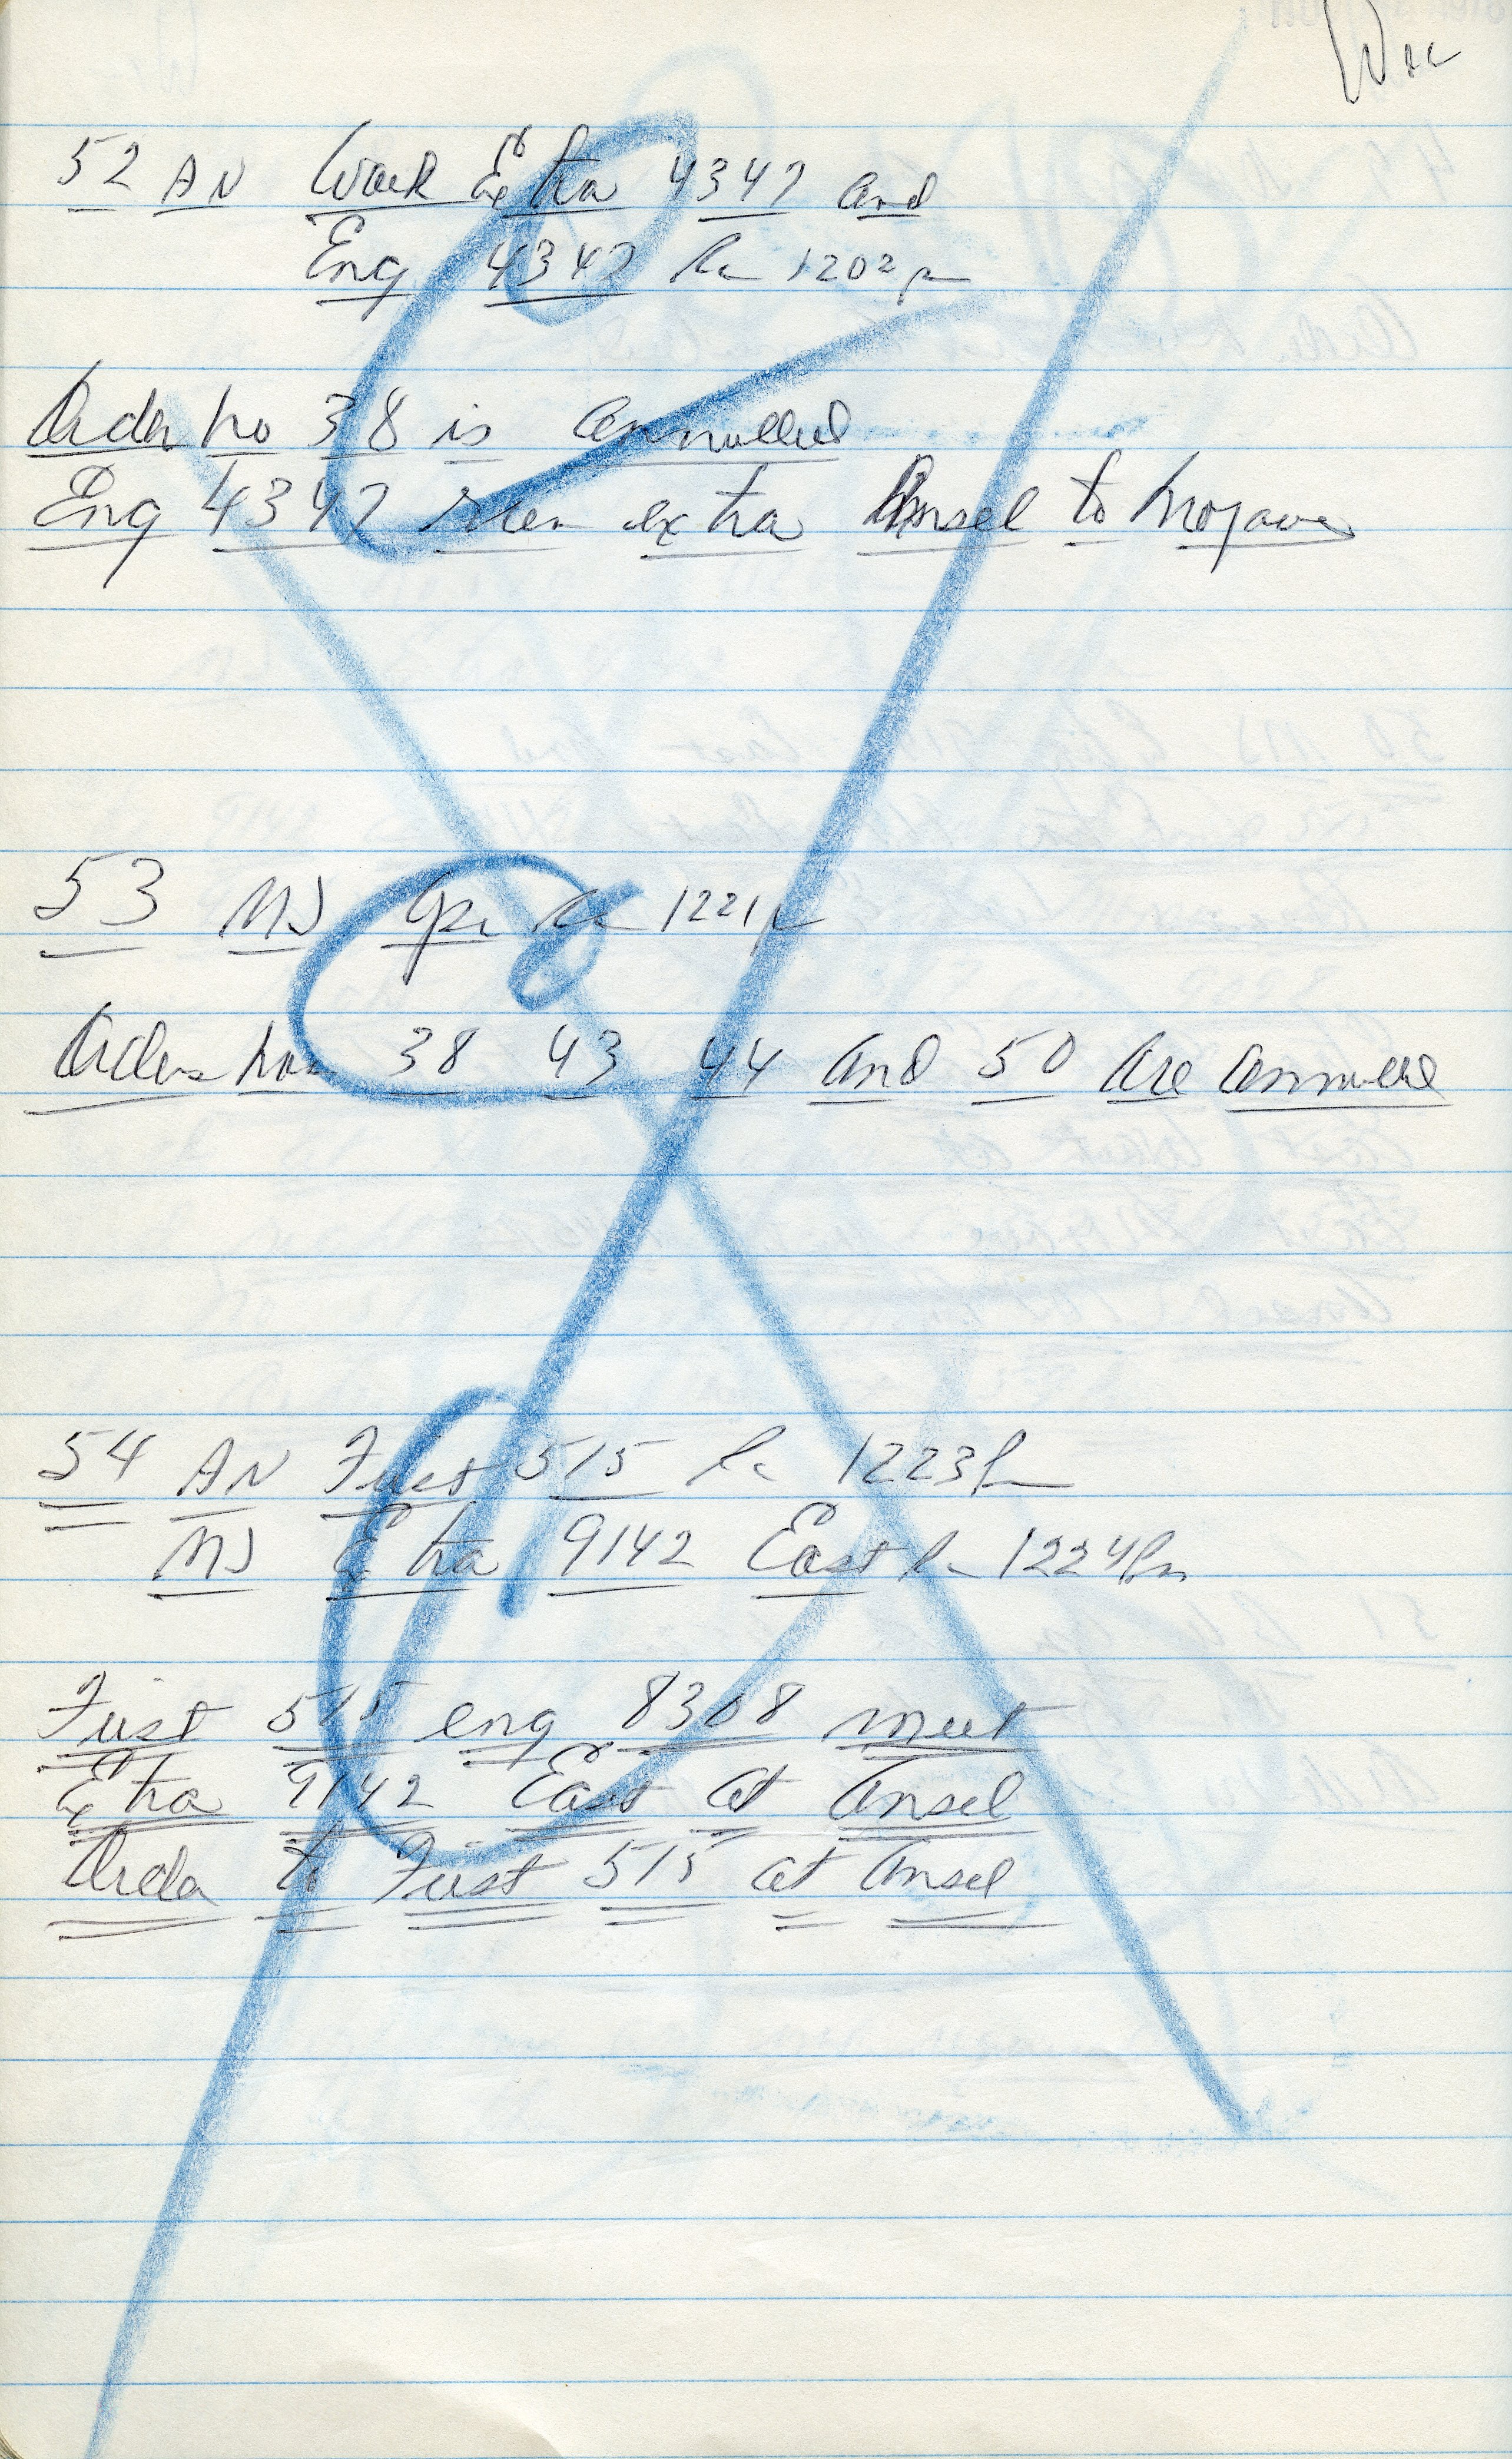 52 AN Work Extra 4347 and
Eng 4347 1202 pm
Order No 38 is annulled
Eng 4347 run extra Ansel to Mojave
53 MJ Opr 1221 p
Orders Nos 38 43 44 and 50 are annulled
54 AN First 515 1223 pm
MJ Extra 9142 East 1224 pm
First 515 eng 8308 meet
Extra 9142 East at Ansel
Order to First 515 at Ansel